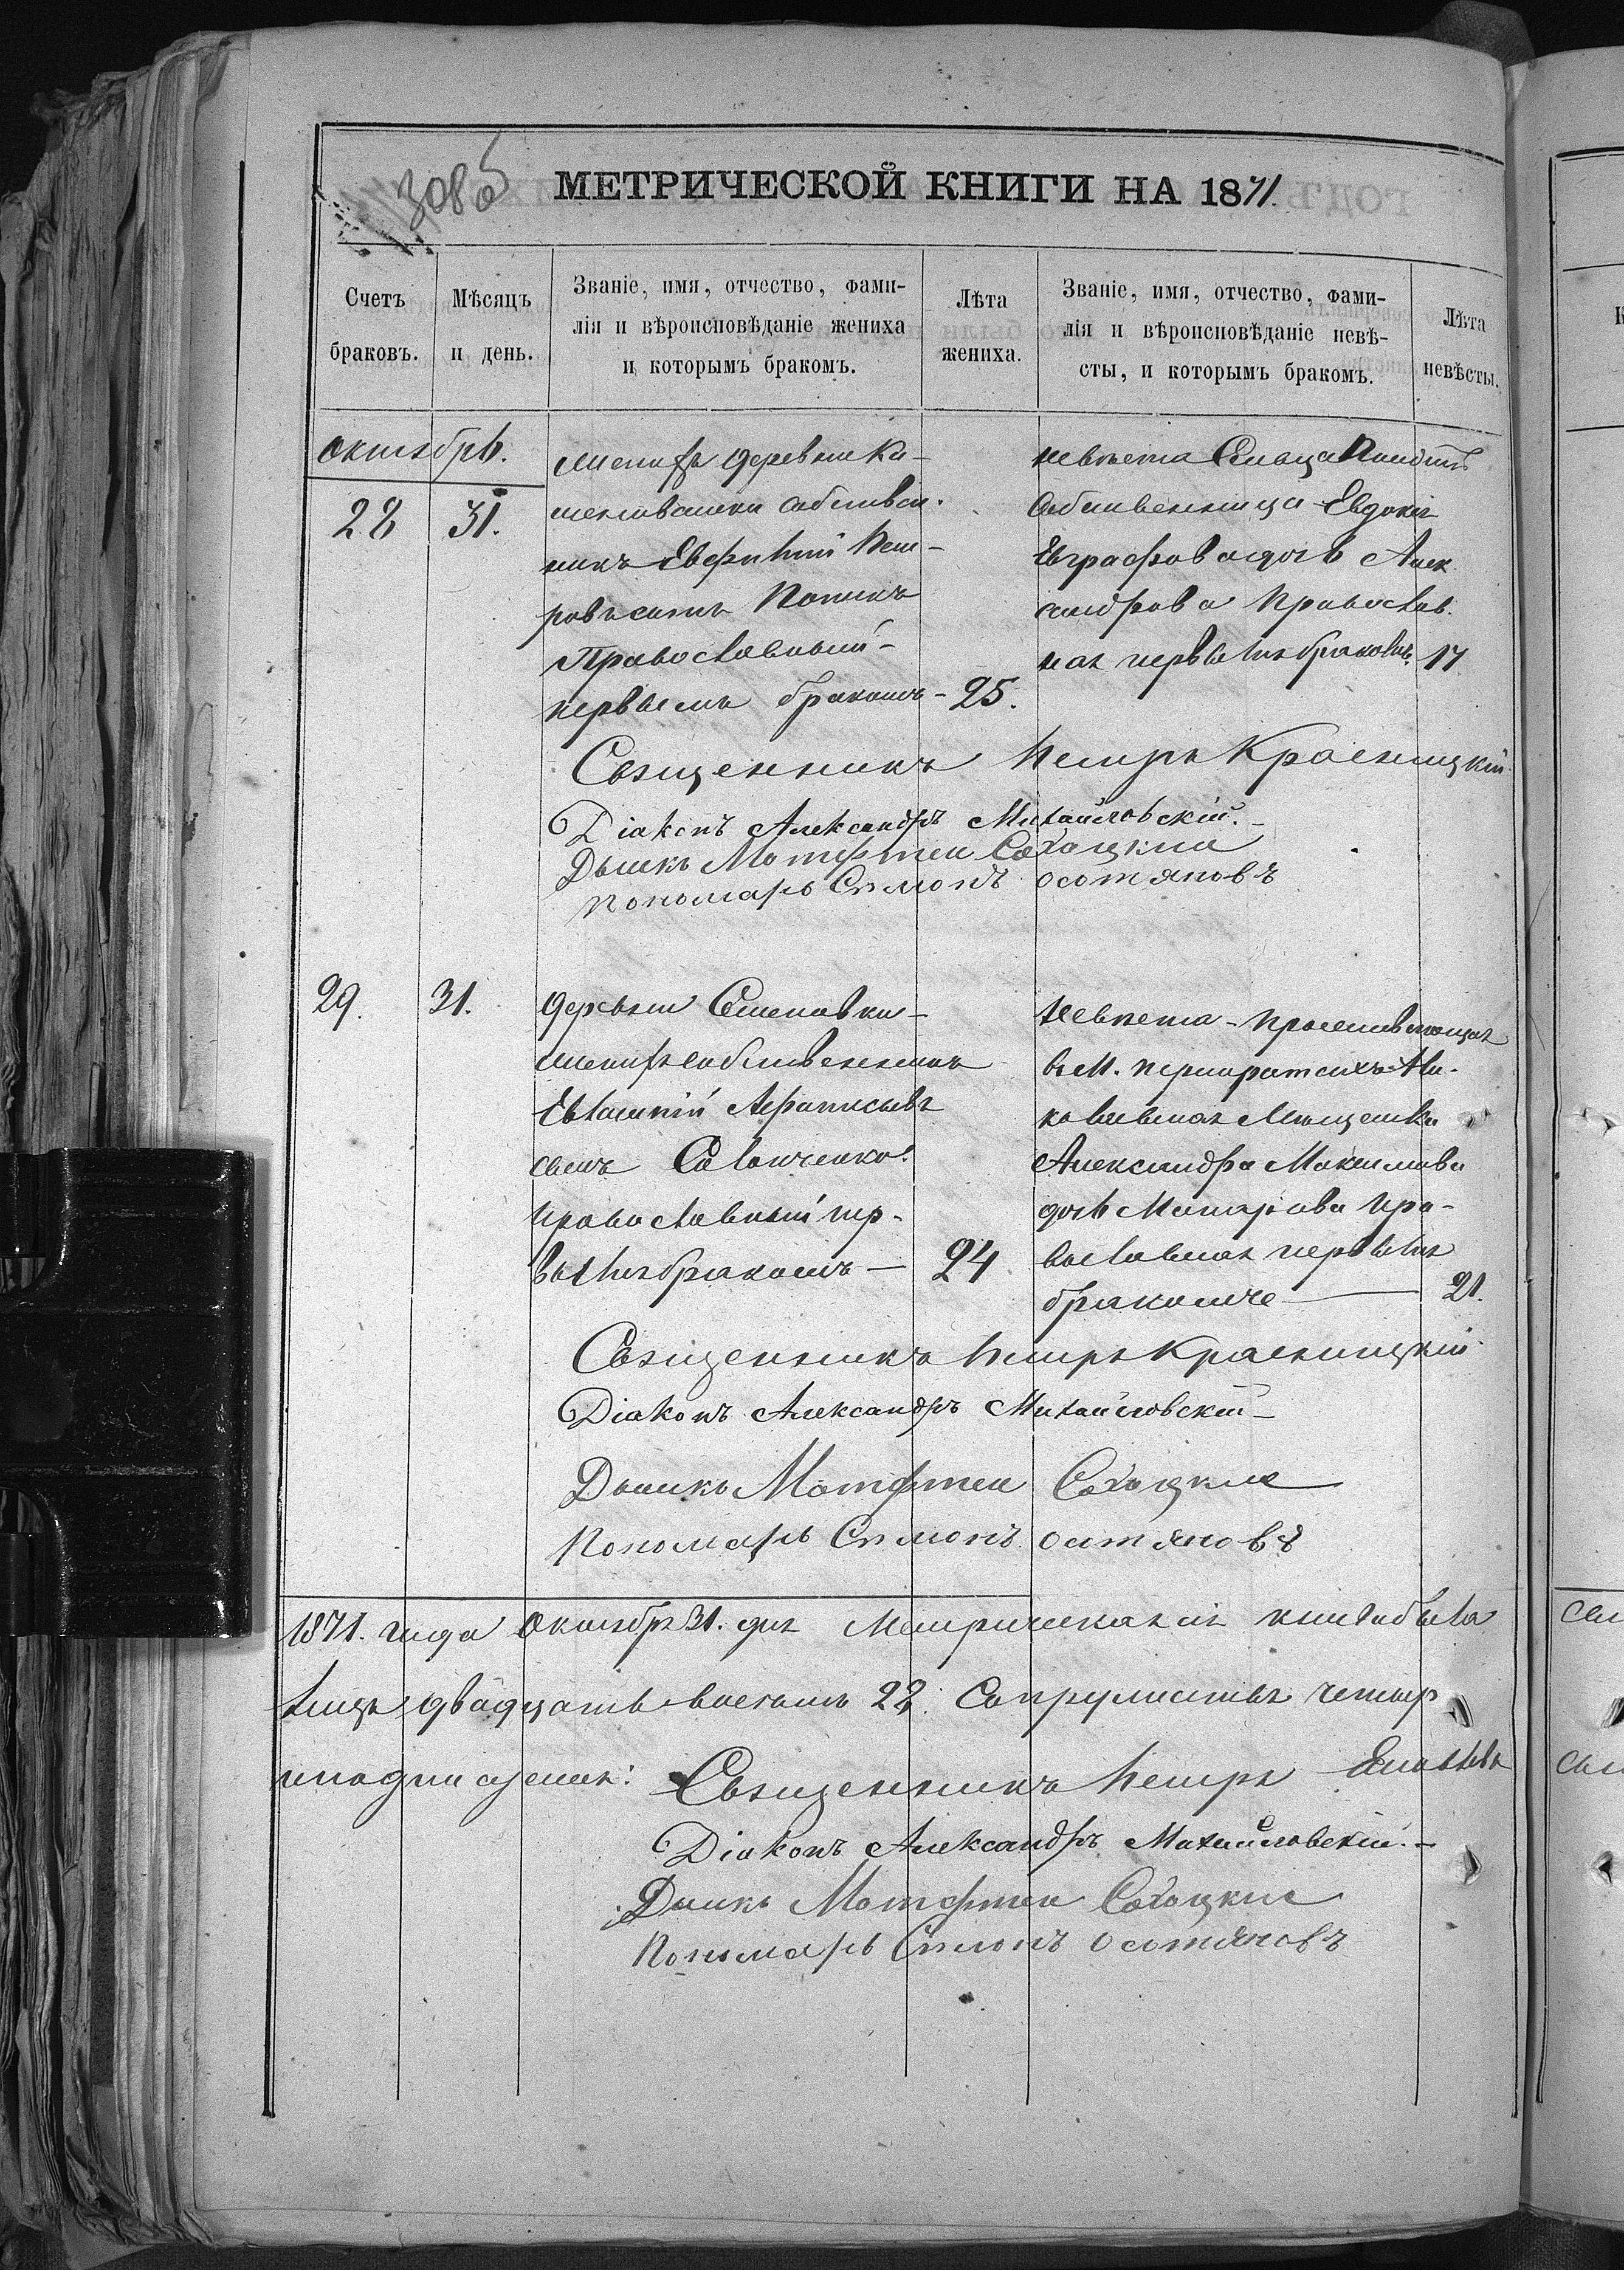 3085
МЕТРИЧЕСКОЙ КНИГИ НА 1871.
Счетъ браковъ.
Мѣсяцъ и день.
Званіе, имя, отчество, фами-
лія и вѣроисповѣданіе жениха
и которымъ бракомъ.
Лѣта жениха.
Званіе, имя, отчество, фами-
лія и вѣроисповѣданіе невѣ-
сты, и которымъ бракомъ.
Лѣта невѣсты.
октябрь.
28
31.
женихъ деревни Ка-
собствен-
никъ Евфимій Пет-
ровъ сынъ Попикъ
Православный
первымъ бракомъ - 25.
невѣста Сельца
Собственница Евдокія
Евграфова дочь Алек
сандрова Православ.
ная первымъ бракомъ. 17
Священникъ Петръ Красницкій
Діаконъ Александръ Михайловскій.
Дьчикъ Мотфтеи Сахацкие
пономарь Сımонъ осотяновъ
29.
31.
деревни Семеновки
женихъ собственникъ
Евлампій Афанасьевъ
сынъ Савонченко
православный пер-
вымъ бракомъ — 24
невѣста - проживающая
въ М. Ни-
колаевная Мѣщанка
Александра Максимова
дочь Макарова пра-
вославная первымъ
бракомъ — 21.
Священникъ Петръ Красницкій
Діаконъ Александръ Михайловскій
Дьчикъ Мотфтеи Сахацкие
Пономарь Сımонъ осотяновъ
1871. года Октября 31. дня Метрическая сія книга была
двадцать восемь 28. Супружествъ четыр
Священникъ Петръ
Діаконъ Александръ Михайловскій.
Дьчикъ Мотфтеи Сахацкие
Пономарь Сımонъ осотяновъ